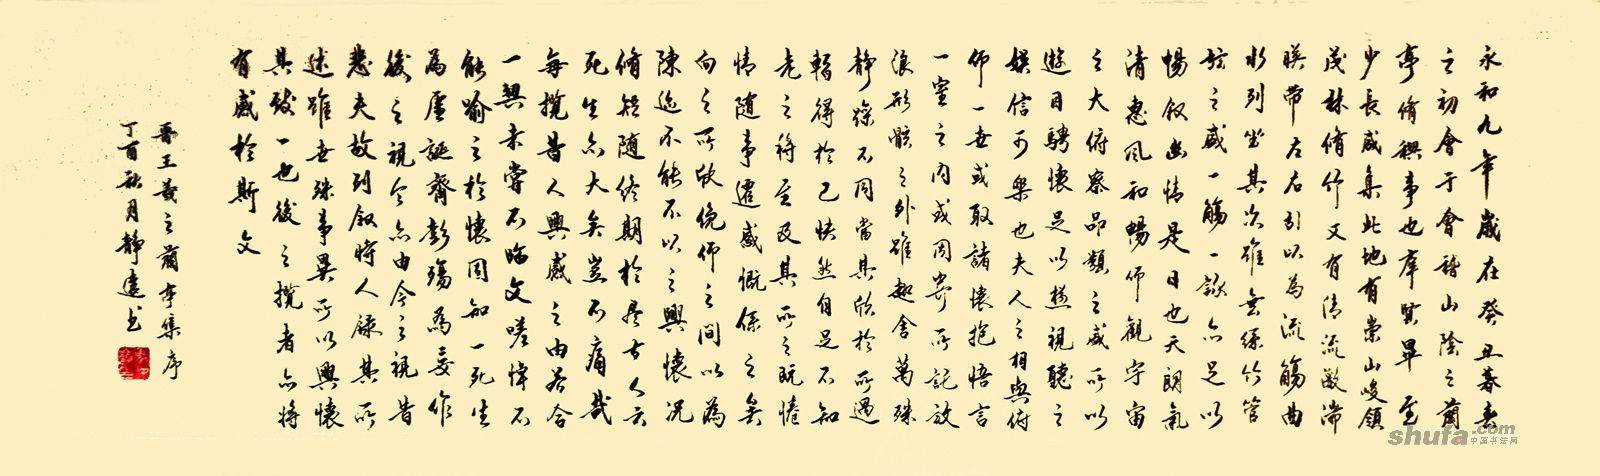 永和九年歲在癸丑暮春
之初會于會稽山陰之蘭
亭脩稧事也羣賢畢至
少長咸集此地有崇山峻領
茂林脩竹又有清流激湍
暎帶左右引以為流觴曲
水列坐其次雖無絲竹管
弦之盛一觴一詠亦足以
暢叙幽情是日也天朗氣
清惠風和暢仰觀宇宙
之大俯察品類之盛所以
遊目騁懷足以極視聽之
娛信可樂也夫人之相與俯
仰一世或取諸懷抱悟言
一室之內或因寄所託放
浪形骸之外雖趣舍萬殊
靜躁不同當其欣於所遇
暫得於己快然自足不知
老之將至及其所之既惓
情隨事遷感慨係之矣
向之所欣俛仰之間以為
陳迹不能不以之興懷況
脩短隨化終期於盡古人云
死生亦大矣豈不痛哉
每攬昔人興感之由若合
一契未嘗不臨文嗟悼不
能喻之於懷固知一死生
為虛誕齊彭殤為妄作
後之視今亦由今之視昔
悲夫故列叙時人錄其所
述雖世殊事異所以興懷
其致一也後之攬者亦將
有感於斯文
晉王羲之蘭亭集序
丁酉秋月靜遠書
shufa.com
中国书法网